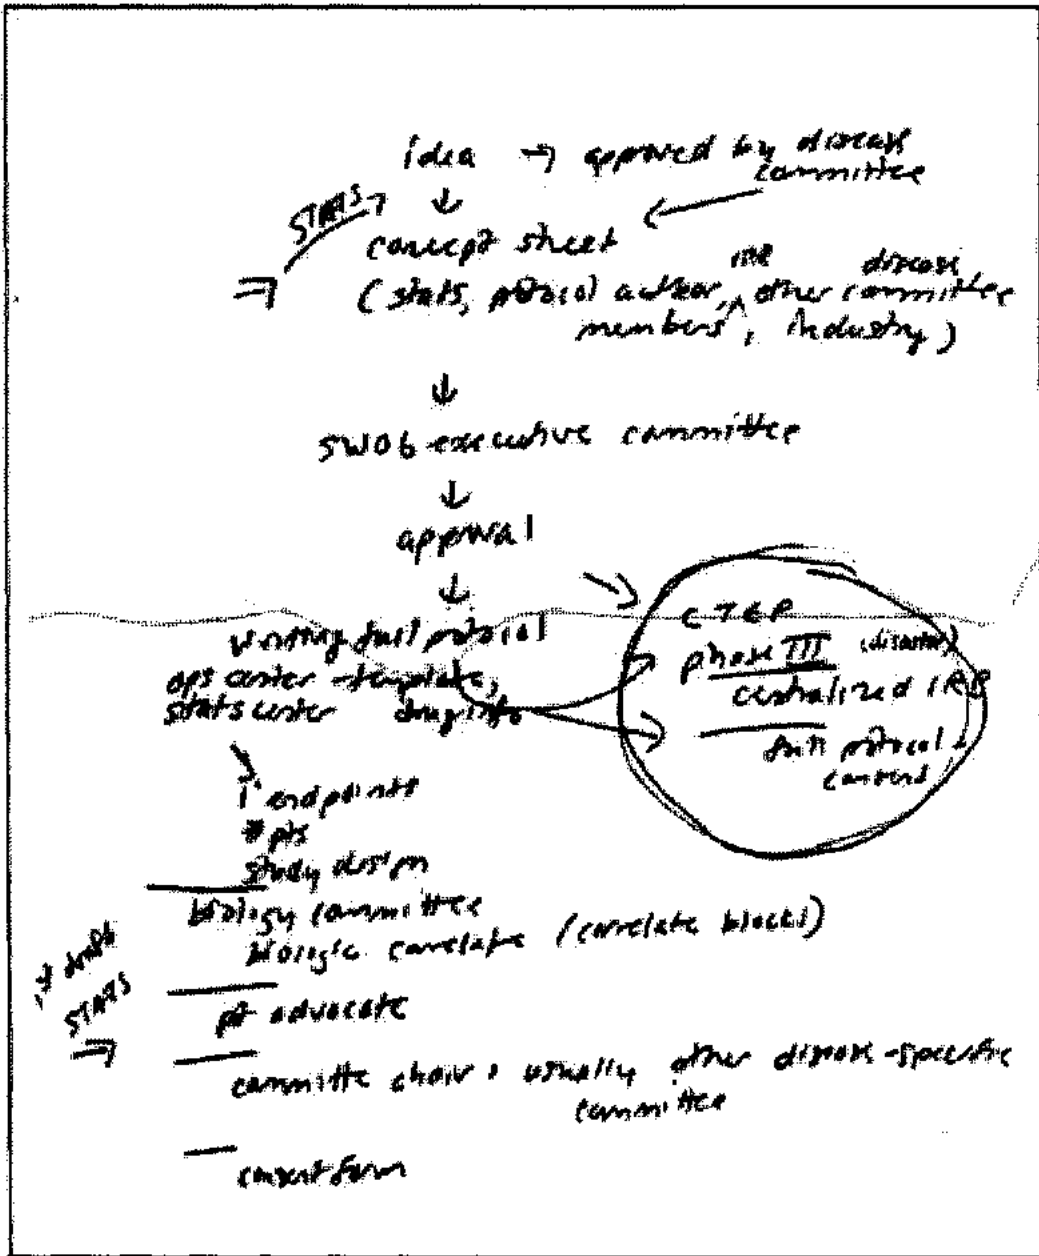 idea → approved by disease
committee
↓
STATS
concept sheet
(stats, protocol author, other committee
disease
members, industry)
↓
SWOG executive committee
↓
approval
↓
writing full protocol
ops center - template,
stats center drug info
CTEP
phase III (disaster)
centralized IRB
full protocol
consent
1° endpoints
# pts
study design
biology committee
biologic correlate (correlate blocks)
1st draft
STATS
pt advocate
committe chair, usually other disease-specific
committee
consent form